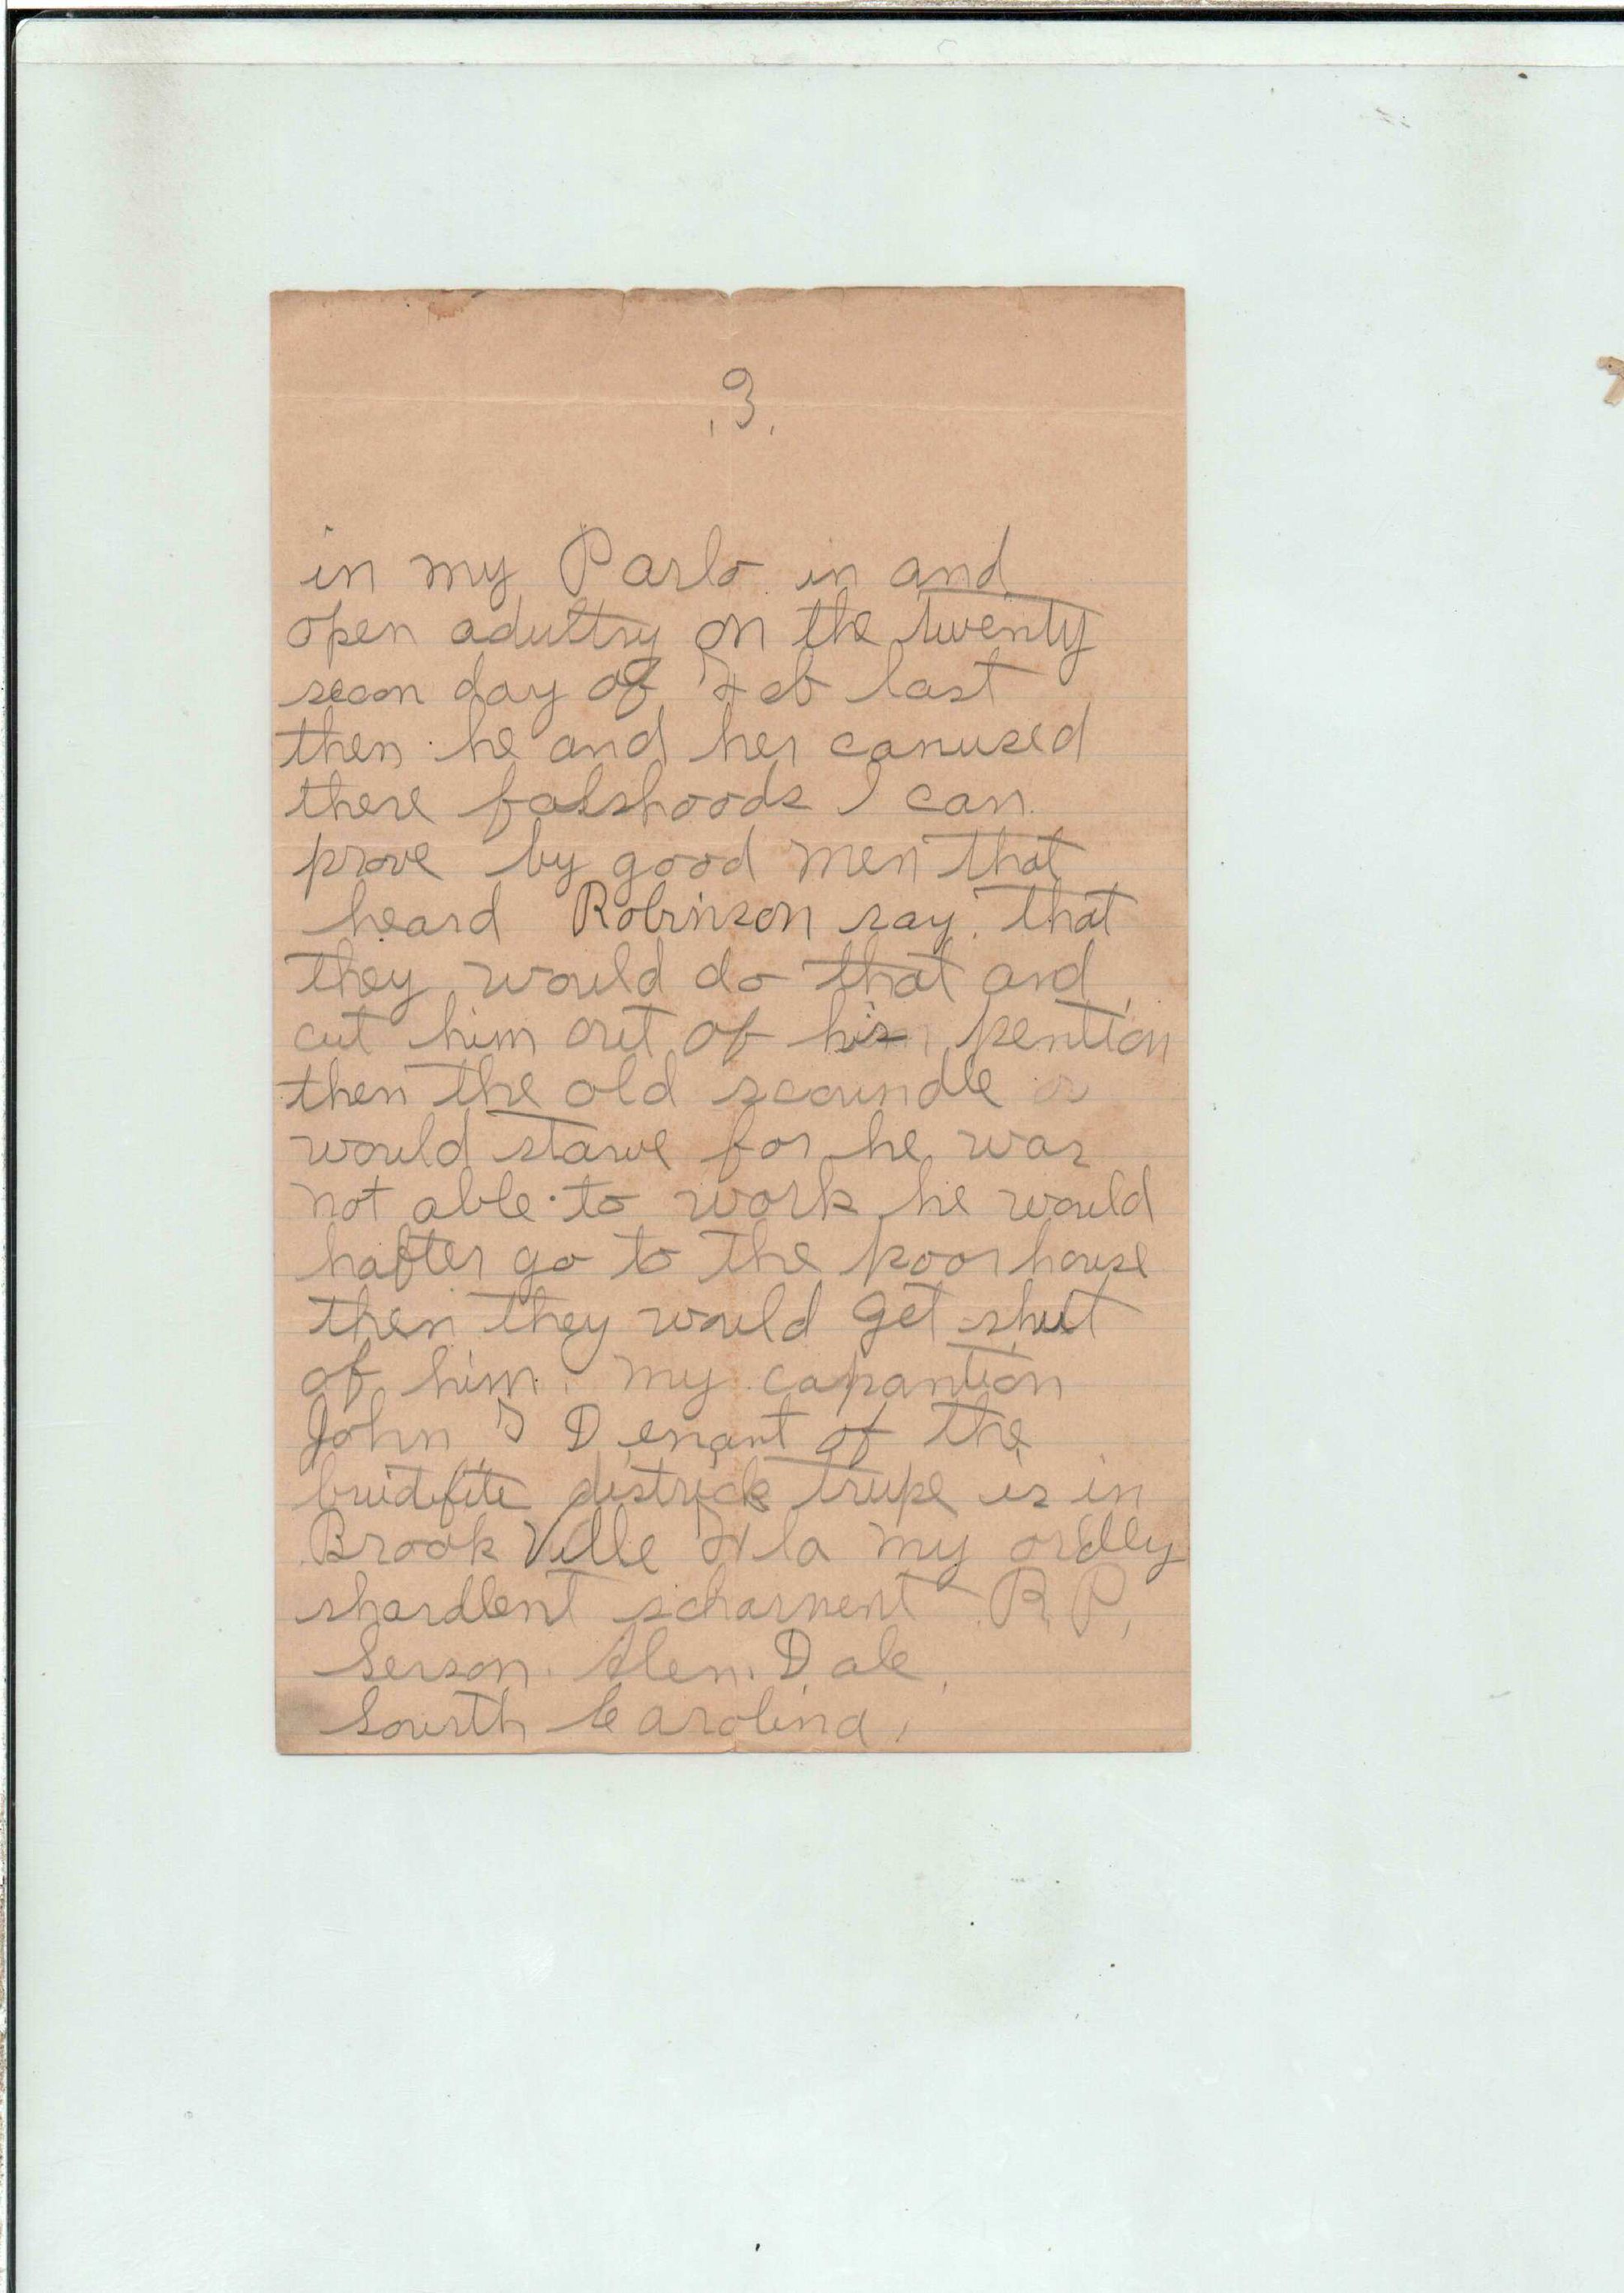 .3.
in my Parlo in and
open adultry on the twenty
secon day of Feb last
then he and her canused
there falshoods I can
prove by good men that
heard Robinson say that
they would do that and
cut him out of his pention
then the old scoundle
would starve for he was
not able to work he would
hafter go to the poor house
then they would get shut
of him. my capantion
John D enant of the
districk trupe is in
Brook Ville Fla my ordley
shardlent scharnent B, P,
Serson. Alen. Dale,
South Carolina,